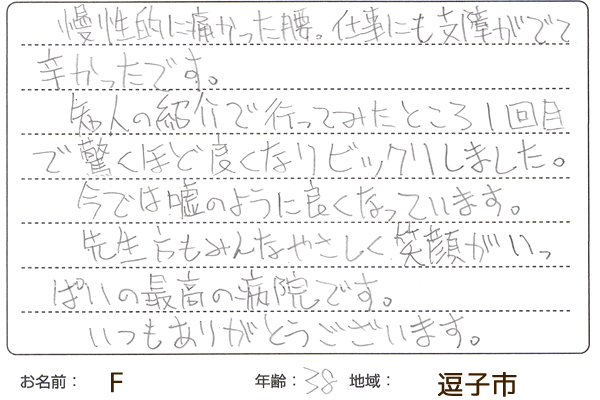 慢性的に痛かった腰。仕事にも支障がでて
辛かったです。
知人の紹介で行ってみたところ1回目
で驚くほど良くなりビックリしました。
今では嘘のように良くなっています。
先生方もみんなやさしく笑顔がいっ
ぱいの最高の病院です。
いつもありがとうございます。
お名前： F 年齢：38 地域： 逗子市